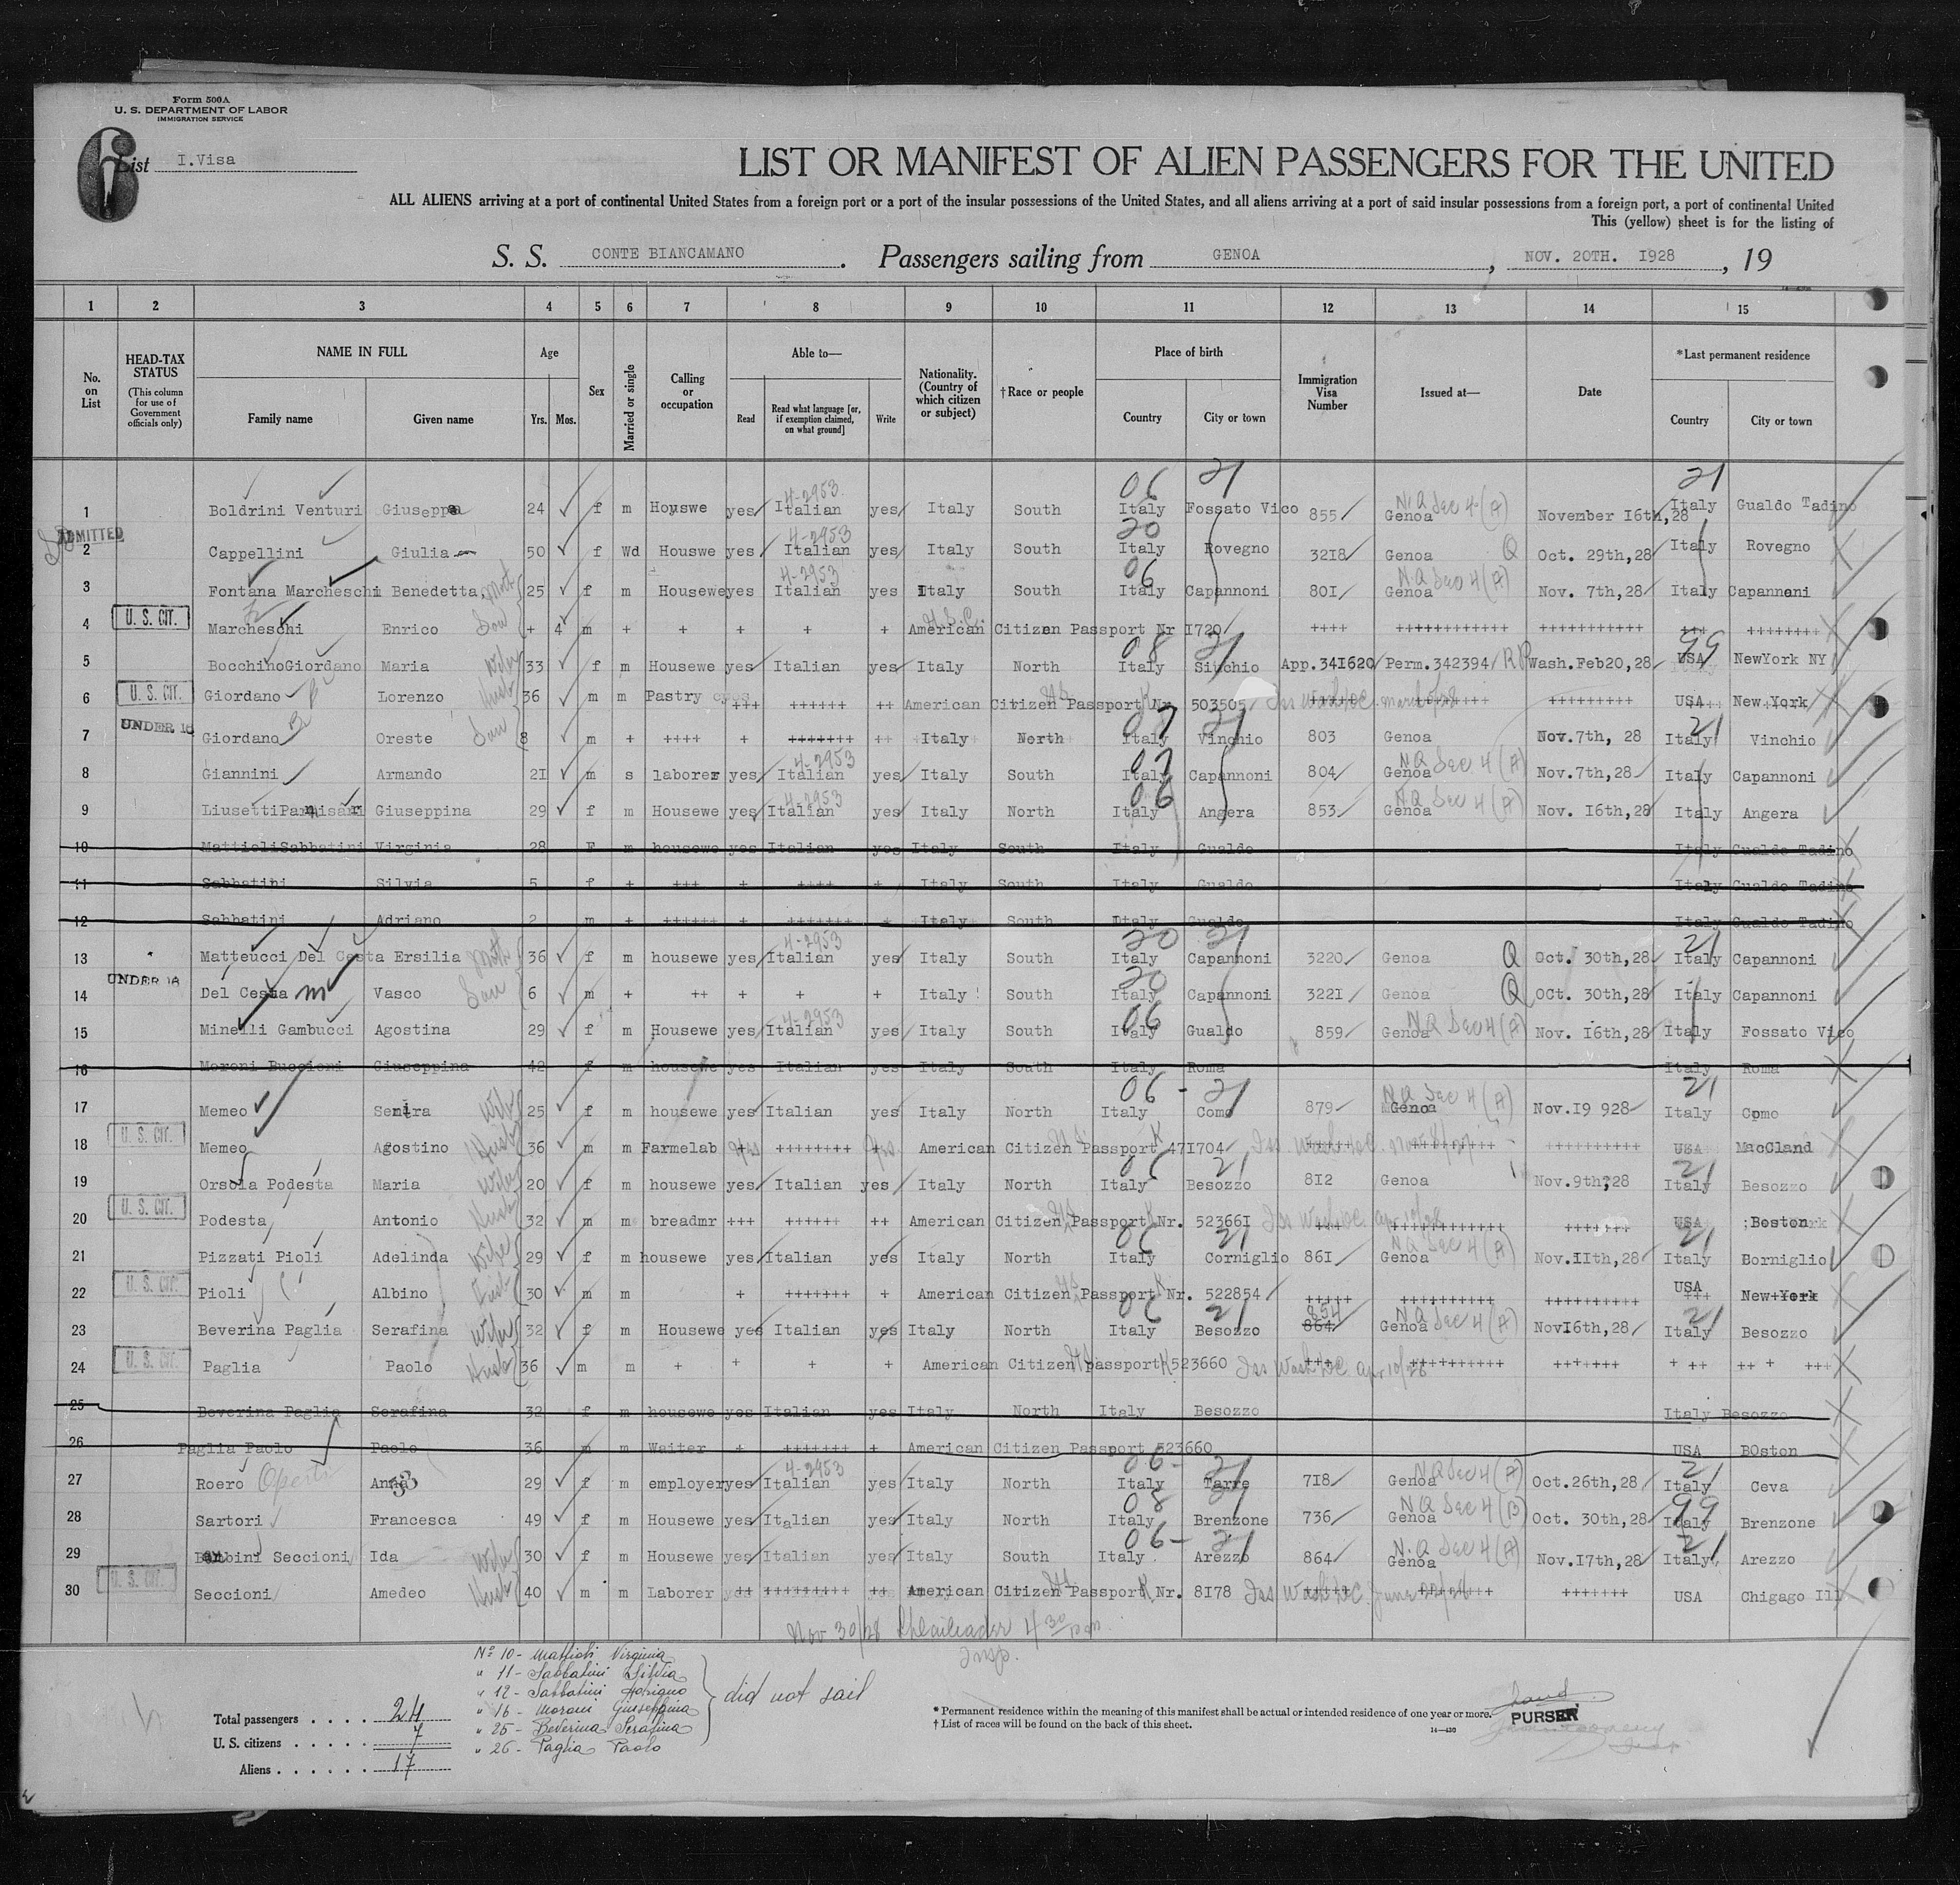 Form 500A
U. S. DEPARTMENT OF LABOR
IMMIGRATION SERVICE
6
List I.Visa
LIST OR MANIFEST OF ALIEN PASSENGERS FOR THE UNITED
ALL ALIENS arriving at a port of continental United States from a foreign port or a port of the insular possessions of the United States, and all aliens arriving at a port of said insular possessions from a foreign port, a port of continental United
This (yellow) sheet is for the listing of
S. S. CONTE BIANCAMANO. Passengers sailing from GENOA, NOV. 20TH. 1928, 19
1 2 3 4 5 6 7 8 9 10 11 12 13 14 15
No. on List
HEAD-TAX STATUS (This column for use of Government officials only)
NAME IN FULL Family name Given name
Age Yrs. Mos.
Sex
Married or single
Calling or occupation
Able to— Read Read what language [or, if exemption claimed, on what ground] Write
Nationality. (Country of which citizen or subject)
†Race or people
Place of birth Country City or town
Immigration Visa Number
Issued at—
Date
*Last permanent residence Country City or town
ADMITTED
1 Boldrini Venturi Giuseppa 24 f m Houswe yes Italian 4-2953 yes Italy South Italy 06 Fossato Vico 21 855 Genoa NQ Sec 4 (A) November 16th,28 Italy 21 Gualdo Tadino
2 Cappellini Giulia 50 f Wd Houswe yes Italian 4-2953 yes Italy South Italy 20 Rovegno 3218 Genoa Q Oct. 29th,28 Italy Rovegno
3 Fontana Marcheschi Benedetta 25 f m Housewe yes Italian 4-2953 yes Italy South Italy 06 Capannoni 801 Genoa NQ Sec 4 (A) Nov. 7th,28 Italy Capannoni
4 U. S. CIT. Marcheschi Enrico + 4 m + + + + + American Citizen Passport Nr 1720 ++++ ++++++++++++ +++++++++++ +++ ++++++++
5 BocchinoGiordano Maria Wife 33 f m Housewe yes Italian yes Italy North Italy 08 21 App.341620 Perm.342394 RP Wash.Feb20,28 USA 99 NewYork NY
6 U. S. CIT. Giordano Lorenzo Husb 36 m m Pastry +++ ++++++ ++ American Citizen Passport Nr. 503505 +++++++++ USA New York
7 UNDER 16 Giordano Oreste 8 m + ++++ + +++++++ ++ Italy North Italy 07 Vinchio 21 803 Genoa Nov.7th, 28 Italy 21 Vinchio
8 Giannini Armando 21 m s laborer yes Italian 4-2953 yes Italy South Italy 07 Capannoni 804 Genoa NQ Sec 4 (A) Nov.7th,28 Italy Capannoni
9 Giuseppina 29 f m Housewe yes Italian 4-2953 yes Italy North Italy 06 Angera 853 Genoa NQ Sec 4 (A) Nov. 16th,28 Italy Angera
10 MattioliSabbatini Virginia 28 F m housewe yes Italian yes Italy South Italy Gualdo Italy Gualdo Tadino
11 Sabbatini Silvia 5 f + +++ + ++++ + Italy South Italy Gualdo Italy Gualdo Tadino
12 Sabbatini Adriano 2 m + ++++++ + +++++++ + Italy South Italy Gualdo Italy Gualdo Tadino
13 Matteucci Del Cesta Ersilia Moth 36 f m housewe yes Italian 4-2953 yes Italy South Italy 20 Capannoni 21 3220 Genoa Q Oct. 30th,28 Italy 21 Capannoni
14 UNDER 16 Del Cesta Vasco 6 m + ++ + + + Italy South Italy 20 Capannoni 3221 Genoa Q OCt. 30th,28 Italy Capannoni
15 Minelli Gambucci Agostina 29 f m Housewe yes Italian 4-2953 yes Italy South Italy 06 Gualdo 859 Genoa NQ Sec 4 (A) Nov. 16th,28 Italy Fossato Vico
16 Moroni Buccioni Giuseppina 42 f m housewe yes Italian yes Italy South Italy Roma Italy Roma
17 Memeo Wife 25 f m housewe yes Italian yes Italy North Italy 06 - Como 21 879 Genoa NQ Sec 4 (A) Nov.19 928 Italy 21 Como
18 U. S. CIT. Memeo Agostino Husb 36 m m Farmelab yes ++++++++ yes American Citizen Passport 471704 ++++++++++ USA MacCland
19 Orsola Podesta Maria Wife 20 f m housewe yes Italian yes Italy North Italy 06 Besozzo 21 812 Genoa Nov.9th,28 Italy 21 Besozzo
20 U. S. CIT. Podesta Antonio Husb 32 m m breadmr +++ ++++++ ++ American Citizen Passport Nr. 523661 Iss Wash DC. apr 10/28 +++++++ USA Boston
21 Pizzati Pioli Adelinda Wife 29 f m housewe yes Italian yes Italy North Italy 06 Corniglio 21 861 Genoa NQ Sec 4 (A) Nov.11th,28 Italy 21 Borniglio
22 U. S. CIT. Pioli Albino 30 m m + +++++++ + American Citizen Passport Nr. 522854 +++++ ++++++++++ ++++++++++ USA New York
23 Beverina Paglia Serafina Wife 32 f m Housewe yes Italian yes Italy North Italy 06 Besozzo 21 864 854 Genoa NQ Sec 4 (A) Nov16th,28 Italy 21 Besozzo
24 U. S. CIT. Paglia Paolo Husb 36 m m + + + + American Citizen passport 523660 Iss Wash DC apr 10/28 ++++++++++ +++++++ + ++ ++ + +++
25 Beverina Paglia Serafina 32 f m housewe yes Italian yes Italy North Italy Besozzo Italy Besozzo
26 Paglia Paolo Paolo 36 m m Waiter + +++++++ + American Citizen Passport 523660 USA BOston
27 Roero Anna 29 f m employer yes Italian 4-2953 yes Italy North Italy 06 - 21 718 Genoa NQ Sec 4 (A) Oct.26th,28 Italy 21 Ceva
28 Sartori Francesca 49 f m Housewe yes Italian yes Italy North Italy 08 Brenzone 21 736 Genoa NQ Sec 4 (B) Oct. 30th,28 Italy 99 Brenzone
29 Seccioni Ida Wife 30 f m Housewe yes Italian yes Italy South Italy 06 - Arezzo 21 864 Genoa N.Q Sec 4 (A) Nov.17th,28 Italy 21 Arezzo
30 U. S. CIT. Seccioni Amedeo Husb 40 m m Laborer ++ +++++++++ ++ American Citizen Passport Nr. 8178 Iss Wash DC. June 22/28 +++++++ USA Chigago Ill
Nov 30/28 4 30 pm.
Insp.
No 10 - Mattioli Virginia
" 11 - Sabbatini Silvia
" 12 - Sabbatini Adriano
" 16 - Moroni Giuseppina
" 25 - Beverina Serafina
" 26 - Paglia Paolo
did not sail
Total passengers . . . . 24
U. S. citizens . . . . . 7
Aliens . . . . . . 17
* Permanent residence within the meaning of this manifest shall be actual or intended residence of one year or more.
† List of races will be found on the back of this sheet.
14—430
PURSER